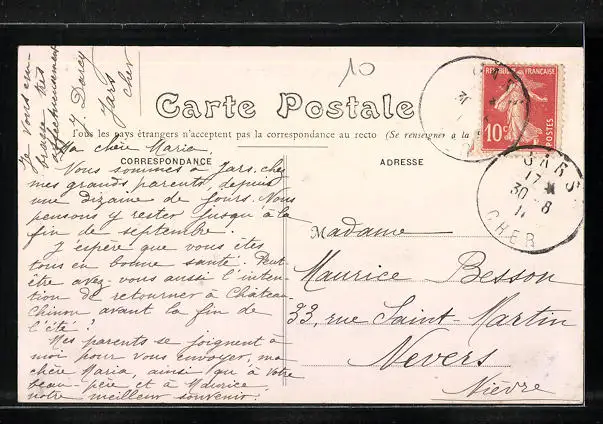 Je vous em-
brasse très
affectueusement
J. Darcy
Jars
Cher
10
Carte Postale
Tous les pays étrangers n'acceptent pas la correspondance au recto (Se renseigner à la
CORRESPONDANCE
ADRESSE
RÉPUBLIQUE FRANÇAISE
10c
POSTES
JARS
17
30-8
CHER
Ma chère Maria.
Vous sommes à Jars, chez
mes grands parents, depuis
une dizaine de jours. Nous
pensons y rester jusqu'à la
fin de septembre.
J'espère que vous êtes
tous en bonne santé. Peut-
être avez-vous aussi l'inten-
tion de retourner à Château-
Chinon avant la fin de
l'été ?
Mes parents se joignent à
moi pour vous envoyer, ma
chère Maria, ainsi qu'à votre
beau-père et à Maurice,
notre meilleur souvenir.
Madame
Maurice Besson
33, rue Saint Martin
Nevers
Nièvre